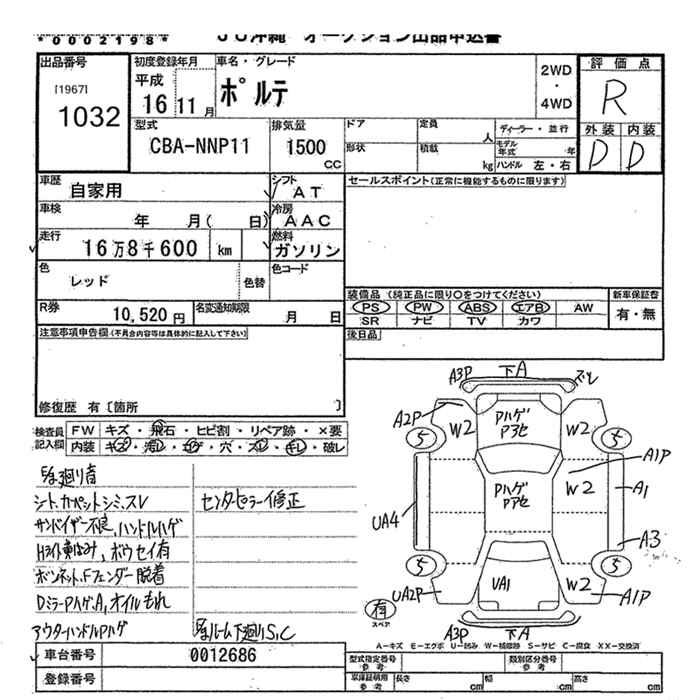 *0002198*
JU沖縄 オークション出品申込書
出品番号
[1967]
1032
初度登録年月
平成
16 11月
車名・グレード
ポルテ
2WD
・
4WD
評価点
R
外装 内装
D D
型式
CBA-NNP11
排気量
1500
CC
ドア
定員
人
ディーラー・並行
形状
積載
kg
モデル年式 年
ハンドル 左・右
車歴
自家用
シフト
AT
セールスポイント(正常に機能するものに限ります)
車検
年 月( 日)
冷房
AAC
走行
16万8千600 km
燃料
ガソリン
色
レッド
色替
色コード
装備品 (純正品に限り○をつけてください)
新車保証書
PS PW ABS エアB AW
SR ナビ TV カワ
有・無
R券
10,520円
名変通知期限
月 日
後日品
注意事項申告欄(不具合内容等は具体的に記入して下さい)
修復歴 有〔箇所 〕
検査員記入欄
FW キズ・飛石・ヒビ割・リペア跡・×要
内装 キズ・汚レ・コゲ・穴・スレ・キレ・破レ
シート、カーペットシミ、スレ
センターピラー修正
サンバイザー不良、ハンドルハゲ
ボンネット、Fフェンダー脱着
DミラーPハゲ、A、オイルもれ
アウターハンドルPハゲ
ルーム下廻りS,C
A3P 下A
A2P W2 Pハゲ W2
5 5
A1P
Pハゲ W2 A1
UA4
A3
5 5
UA2P UA1 W2 A1P
有
スペア
A3P 下A
A-キズ E-エクボ U-凹み W-補修跡 S-サビ C-腐食 XX-交換済
車台番号
0012686
型式指定番号 参考
類別区分番号 参考
登録番号
車庫証明用 参考
長さ cm 幅 cm 高さ cm